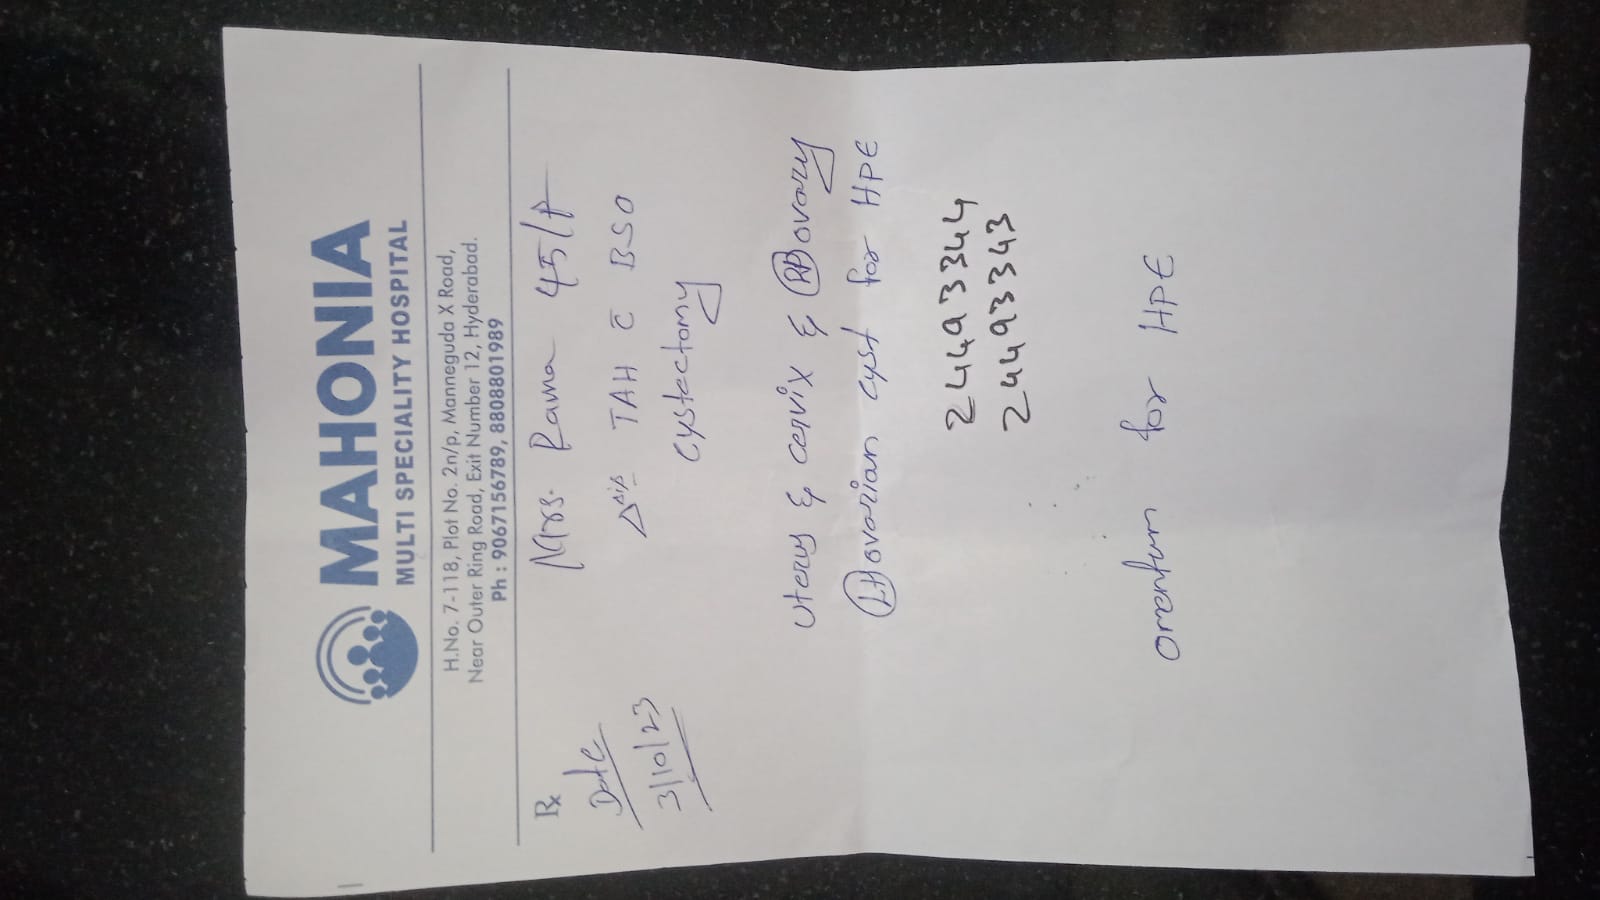 MAHONIA
MULTI SPECIALITY HOSPITAL
H.No. 7-118, Plot No. 2n/p, Manneguda X Road,
Near Outer Ring Road, Exit Number 12, Hyderabad.
Ph : 9067156789, 8808801989
Rx
Date
3/10/23
Mrs. Rama 45/F
Δsis TAH c̄ BSO
cystectomy
uterus & cervix & Rt ovary
Lt ovarian cyst for HPE
24493344
24493343
omentum for HPE